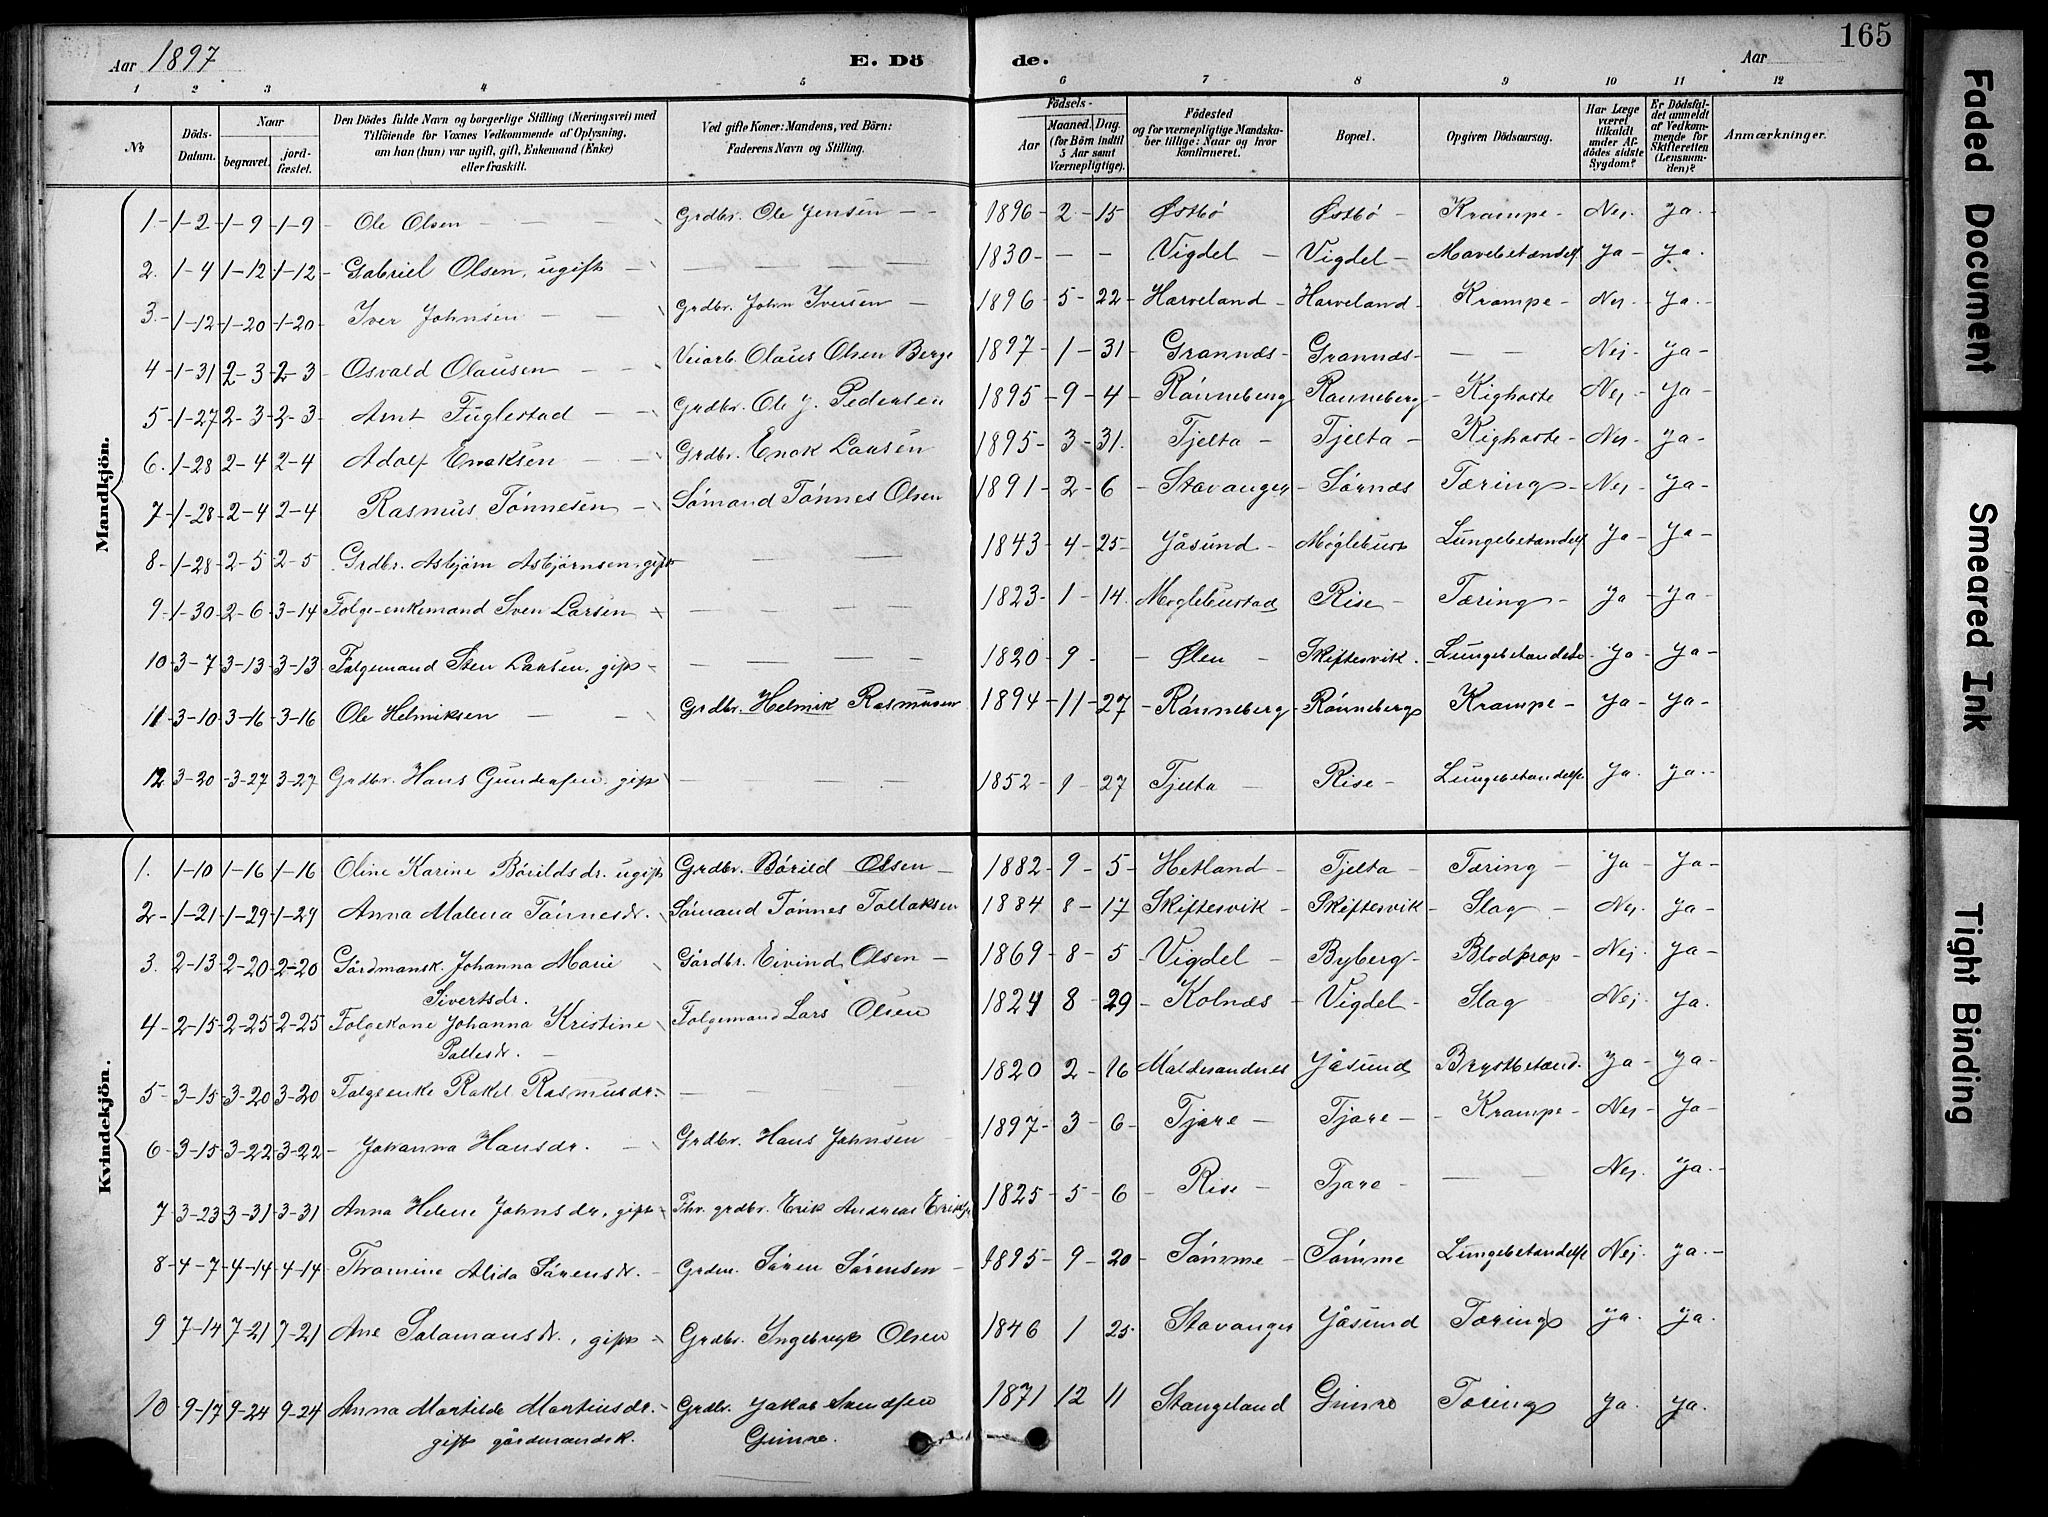 165
Aar 1897 E. Döde. Aar
1 2 3 4 5 6 7 8 9 10 11 12
No
Döds-Datum.
Naar
begravet.
jord-fæstet.
Den Dödes fulde Navn og borgerlige Stilling (Næringsvei) med
Tilföiende for Voxnes Vedkommende af Oplysning,
om han (hun) var ugift, gift, Enkemand (Enke)
eller fraskilt.
Ved gifte Koner: Mandens, ved Börn:
Faderens Navn og Stilling.
Födsels-
Aar
Maaned. Dag.
(for Börn indtil
5 Aar samt
Værnepligtige).
Födested
og for værnepligtige Mandska-
ber tillige: Naar og hvor
konfirmeret.
Bopæl.
Opgiven Dödsaarsag.
Har Læge
været
tilkaldt
under Af-
dödes sidste
Sygdom?
Er Dödsfal-
det anmeldt
af Vedkom-
mende for
Skifteretten
(Lensman-
den)?
Anmærkninger.
Mandkjön.
1 - 1-2 - 1-9 - 1-9 - Ole Olsen - - Grdbr. Ole Jensen - - 1896 - 2 - 15 Østbø Østbø - Krampe - Nej - Ja -
2. 1-4 - 1-12 1-12 - Gabriel Olsen, ugift - - - - 1830 - - - Vigdel - Vigdel - Mavebetændels Ja - Ja.
3. - 1-12 1-20 1-20 - Iver Johnsen - - Grdbr. John Iversen - 1896 - 5 - 22 - Harveland - Harveland - Krampe - Nej - Ja. -
4 - 1-31 2-3 2-3 Osvald Olausen - - Veiarb. Olaus Olsen Berge 1897 - 1 - 31 - Grannæs - Grannæs - - - Nej - Ja -
5 - 1-27 2-3 2-3 - Arnt Fuglestad - Grdbr. Ole J. Pedersen 1895 - 9 - 4 - Rønneberg Rønneberg - Kighoste - Nej - Ja -
6. 1-28 2-4 2-4 - Adolf Enoksen - Grdbr. Enok Larsen 1895 - 3 - 31. Tjelta - Tjelta - Kighoste - Nej - Ja -
7 - 1-28 - 2-4 2-4 Rasmus Tönnesen - Sömand Tönnes Olsen 1891 - 2 - 6 - Stavanger - Sørnæs Tæring - Nej - Ja -
8 - 1-28 - 2-5 2-5 Grdbr. Asbjørn Asbjørnsen, gift - - 1843 - 4 - 25 - Jåsund - Møglebust Lungebetændels Ja - Ja -
9 - 1-30 2-6 3-14 Folge-enkemand Sven Larsen - - - 1823 - 1 - 14. Moglebustad Rise - Tæring - Ja - Ja -
10 - 3-7 3-13 3-13 Folgemand Sten Larsen, gift - - - - 1820 - 9 - Ølen - Skiftesvik. Lungebetændelse Ja - Ja -
11 - 3-10 3-16 3-16 Ole Helmiksen - - Grdbr. Helmik Rasmusen 1894 - 11 - 27 - Rønneberg - Rønneberg Krampe - Ja - Ja -
12 3-20 - 3-27 3-27 Grdbr. Hans Gundersen, gift - - - 1852 - 9 - 27 Tjelta - Rise - Lungebetændelse Ja. Ja. -
Kvindekjön.
1. 1-10 1-16 1-16 Oline Karine Börildsdr. ugift Grdbr. Börild Olsen - 1882 - 9 - 5 - Hetland - Tjelta - Tæring - Ja - Ja -
2 - 1-21 1-29 1-29 - Anna Malena Tönnesdr. Sömand Tönnes Tollaksen 1884 - 8 - 17 Skiftesvik - Skiftesvik - Slag - Nej. Ja -
3. 2-13 2-20 2-20 Gårdmansk. Johanna Marie Gårdbr. Eivind Olsen - 1869 - 8 - 5 - Vigdel - Byberg - Blodprop - Nej - Ja -
Sivertsdr.
4 - 2-15 2-25 2-25 Folgekone Johanna Kristine Folgemand Lars Olsen 1824 8 - 29 - Kolnæs - Vigdel - Slag Nej Ja.
Pallesdr. -
5 - 3-15 3-20 3-20 - Folgeenke Rakel Rasmusdr. - - 1820 - 2 - 16 Jåsund Brystbetænd. Ja - Ja -
6 - 3-15 3-22 3-22 - Johanna Hansdr. - Grdbr. Hans Johnsen 1897 - 3 - 6 - Tjare - Tjare - Krampe - Nej - Ja -
7 - 3-23 3-31 3-31 Anna Helene Johnsdr, gift - Fhv. grdbr. Erik Andreas Eriks 1825 - 5 - 6 - Rise - Tjare - - - Nej Ja. -
8 - 4-7 4-14 4-14 Thomine Alida Sörensdr. - Grdbr. Sören Sørensen - 1895 - 9 - 20 - Sömme - Sömme Lungebetændelse Nej - Ja. -
9 7-14 7-21 7-21 Ane Salamonsdr., gift - Grdbr. Ingebregt Olsen 1846 1 25. Stavanger Jåsund Tæring Ja. Ja.
10 - 9-17 9-24 9-24 Anna Martilde Martinsdr. Grdbr. Jakob 1871 12 11 Stangeland Gimre Tæring Ja Ja.
gift gårdmandsk. Gimre.
Faded Document
Smeared Ink
Tight Binding